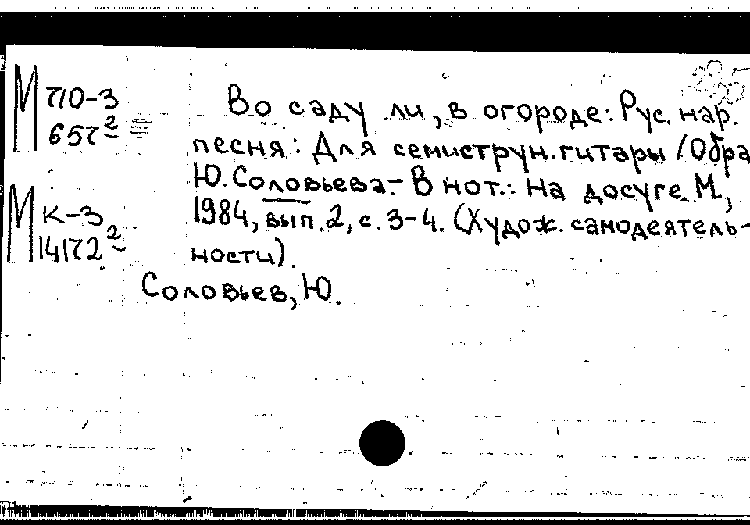 М 710-3
657²
М к-3
14172²
Во саду ли, в огороде: Рус. нар.
песня: Для семиструн. гитары / Обра
Ю. Соловьева.- В нот.: На досуге. М.,
1984, вып. 2, с. 3-4. (Худож. самодеятель-
ности).
Соловьев, Ю.